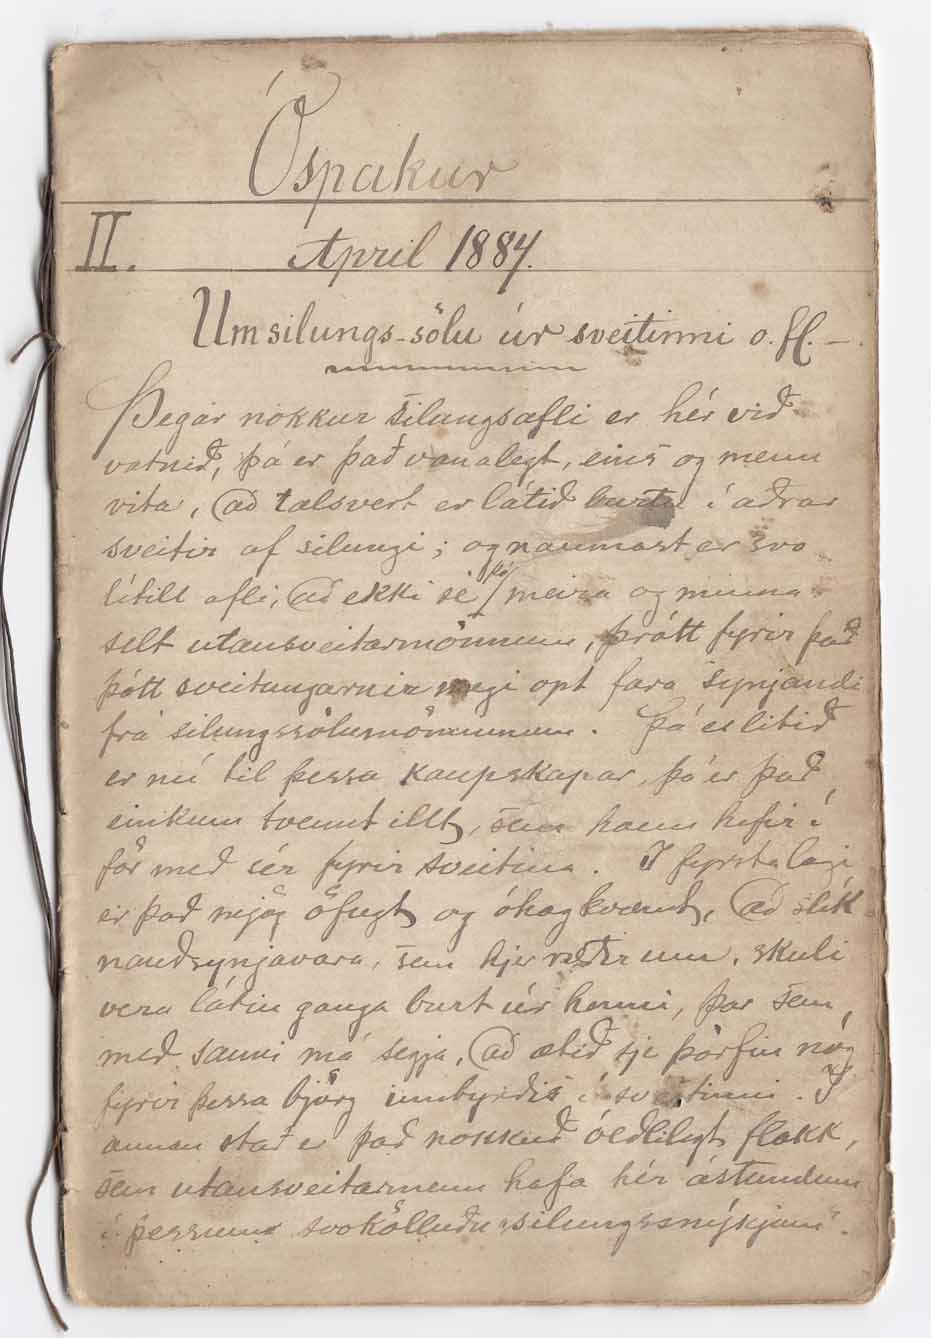 Óspakur
II. April 1884.
Um silungs-sölu úr sveitinni o. fl. –.
Þegar nokkur silungsafli er hér við
vatnið, þá er það vanalegt, eins og menn
vita, að talsvert er látið burtu í aðrar
sveitir af silungi; og naumast er svo
lítill afli, að ekki sé þó meira og minna
selt utansveitarmönnum, þrátt fyrir það
þótt sveitungarnir megi opt fara synjandi
frá silungssölumönnunum. Þá er litið
er nú til þessa kaupskapar, þá er það
einkum tvennt illt, sem hann hefir í
för með sér fyrir sveitina. Í fyrsta lagi
er það mjög öfugt og óhagkvæmt, að slík
nauðsynjavara, sem hjer ræðir um, skuli
vera látin ganga burt úr henni, þar sem
með sanni má segja, að ætið sje þörfin nóg
fyrir þessa björg innbyrðis í sveitinni. Í
annan stað er það nokkuð óeðlilegt flakk,
sem utansveitarmenn hafa hér ástundum
í þessum svokölluðu "silungssnýkjum".